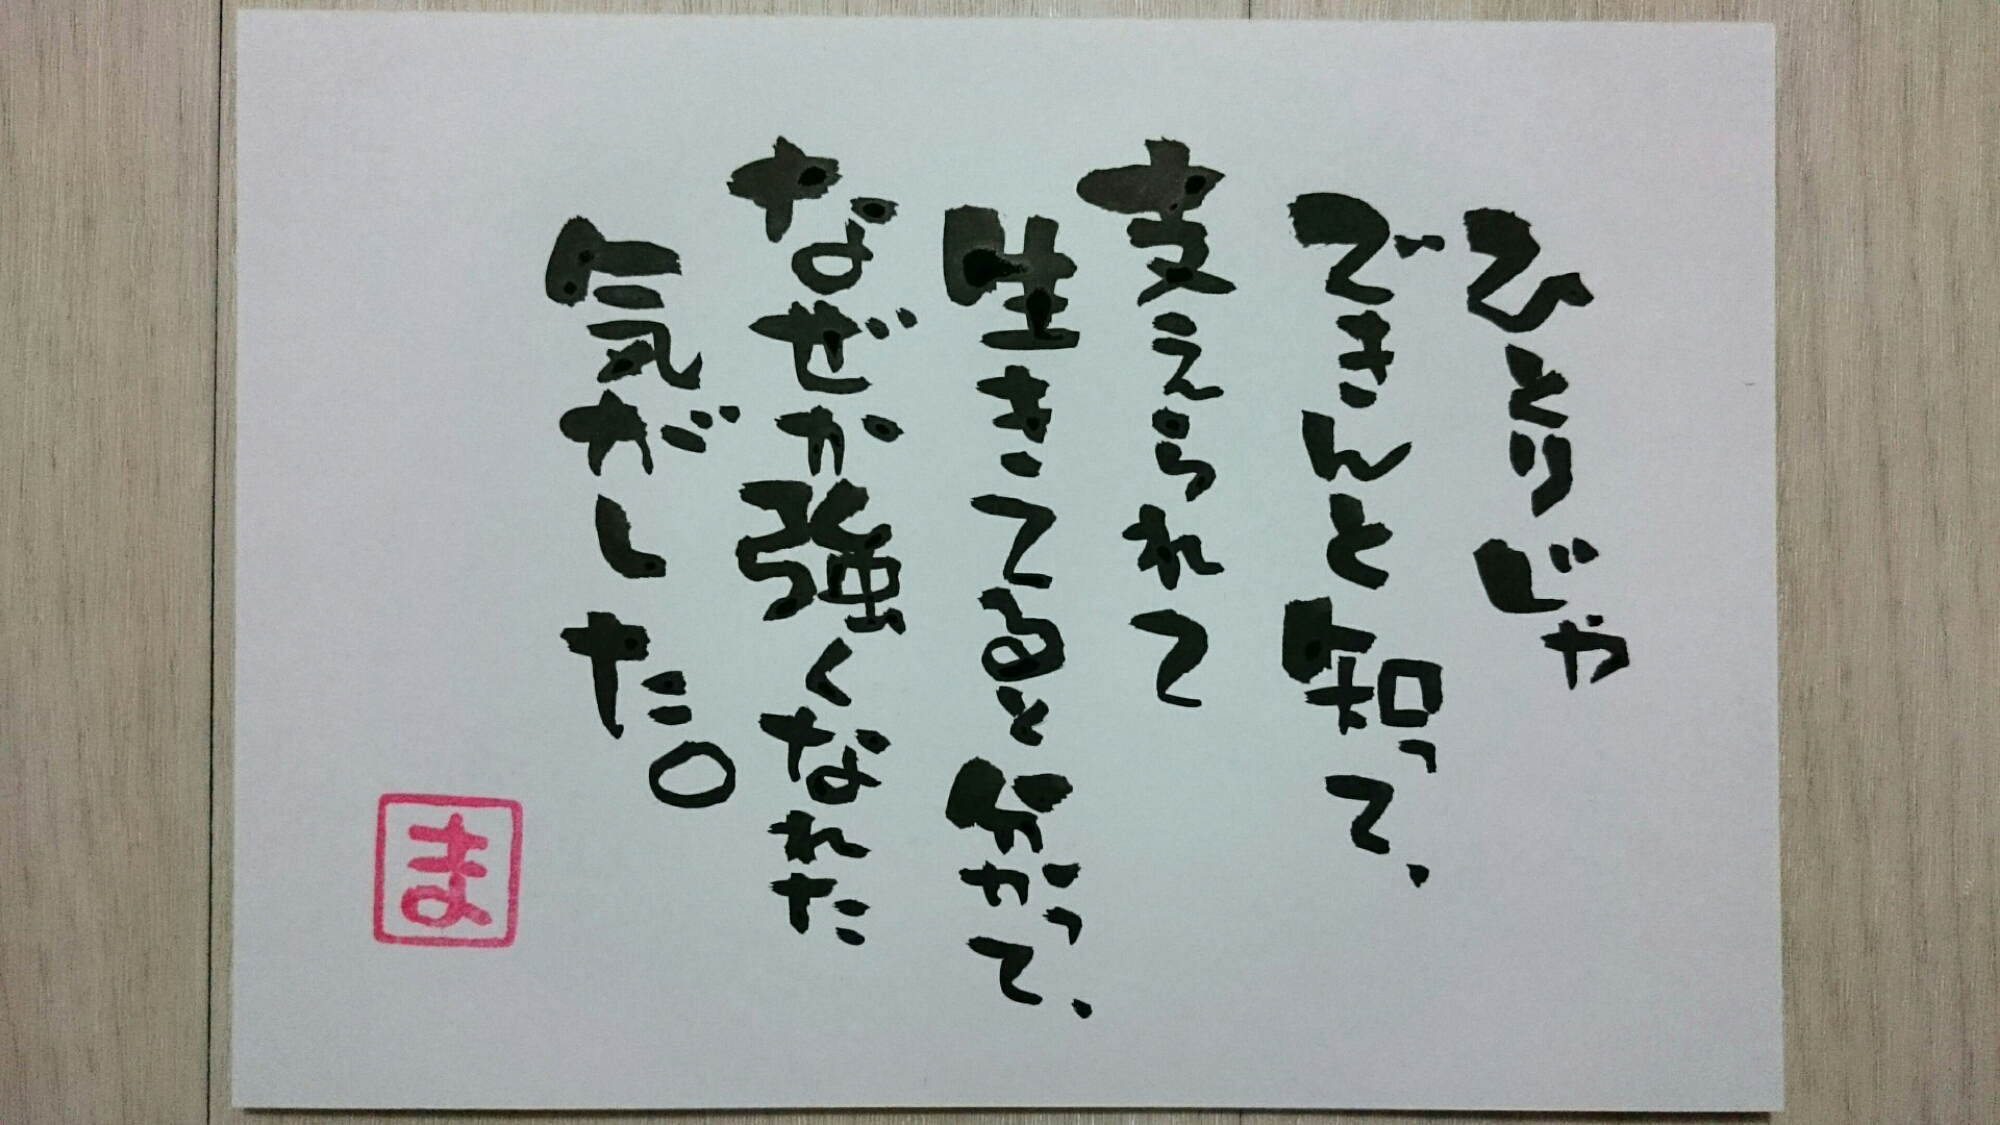 ひとりじゃ
できんと知って、
支えられて
生きてると分かって、
なぜか強くなれた
気がした。
ま